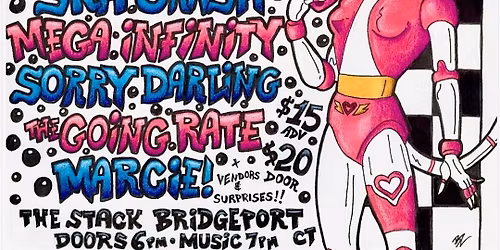 MEGA INFINITY
SORRY DARLING
THE GOING RATE
MARCIE!
$15
ADV
$20
DOOR
+
VENDORS
&
SURPRISES!!
THE STACK BRIDGEPORT
CT
DOORS 6PM · MUSIC 7PM